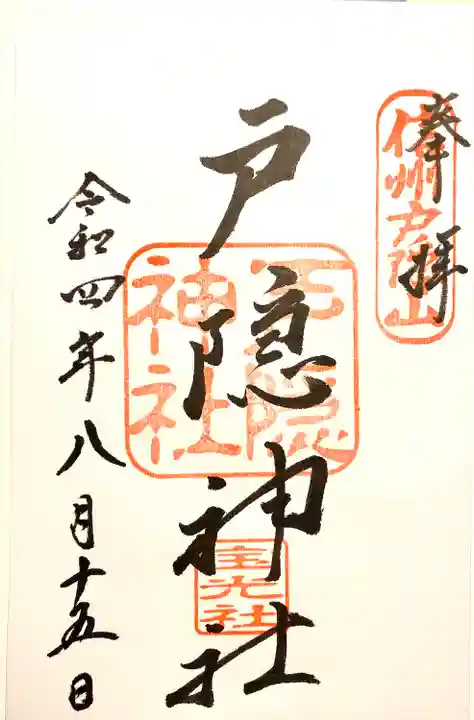 奉拝
信州戸隠山
戸隠神社
戸隠神社
宝光社
令和四年八月十五日